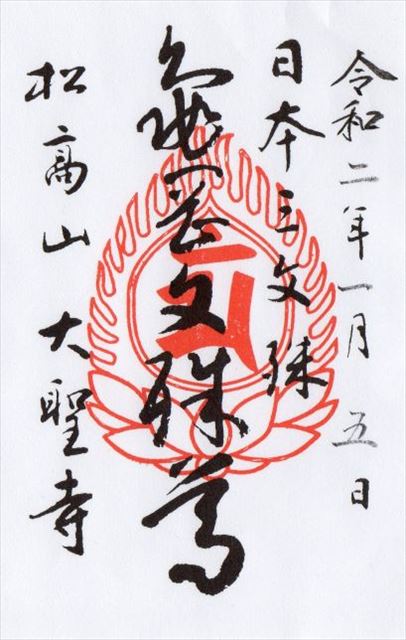 令和二年一月五日
日本三文殊
亀岡文殊尊
松高山 大聖寺